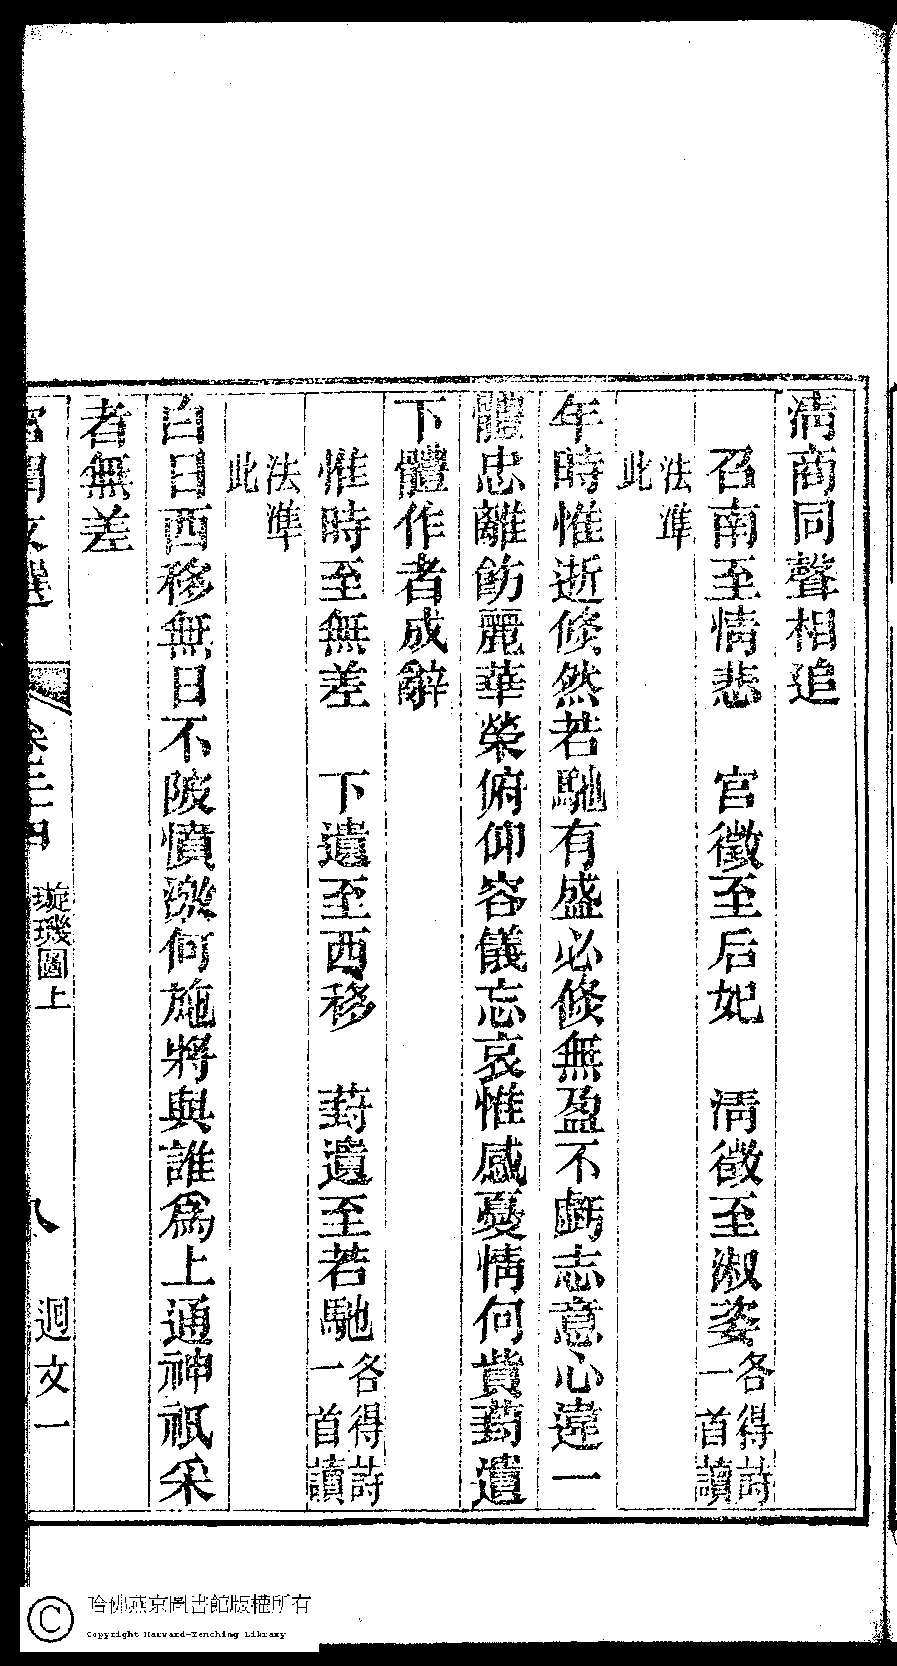 淸商同聲相追
召南至情悲　宮徵至后妃　淸徵至淑姿各得詩一首讀
法準此
年時惟逝倐然若馳有盛必倐無盈不虧志意心違一
體忠離飭麗華榮俯仰容儀忘哀惟感憂情何葑遺
下體作者成辭
惟時至無差　下遺至西移　葑遺至若馳各得詩一首讀
法準此
白日西移無日不陂憤激何施將與誰爲上通神祇采
者無差
宮閨文選　卷二十四　璇璣圖上　八　迴文一
哈佛燕京圖書館版權所有
Copyright Harvard-Yenching Library